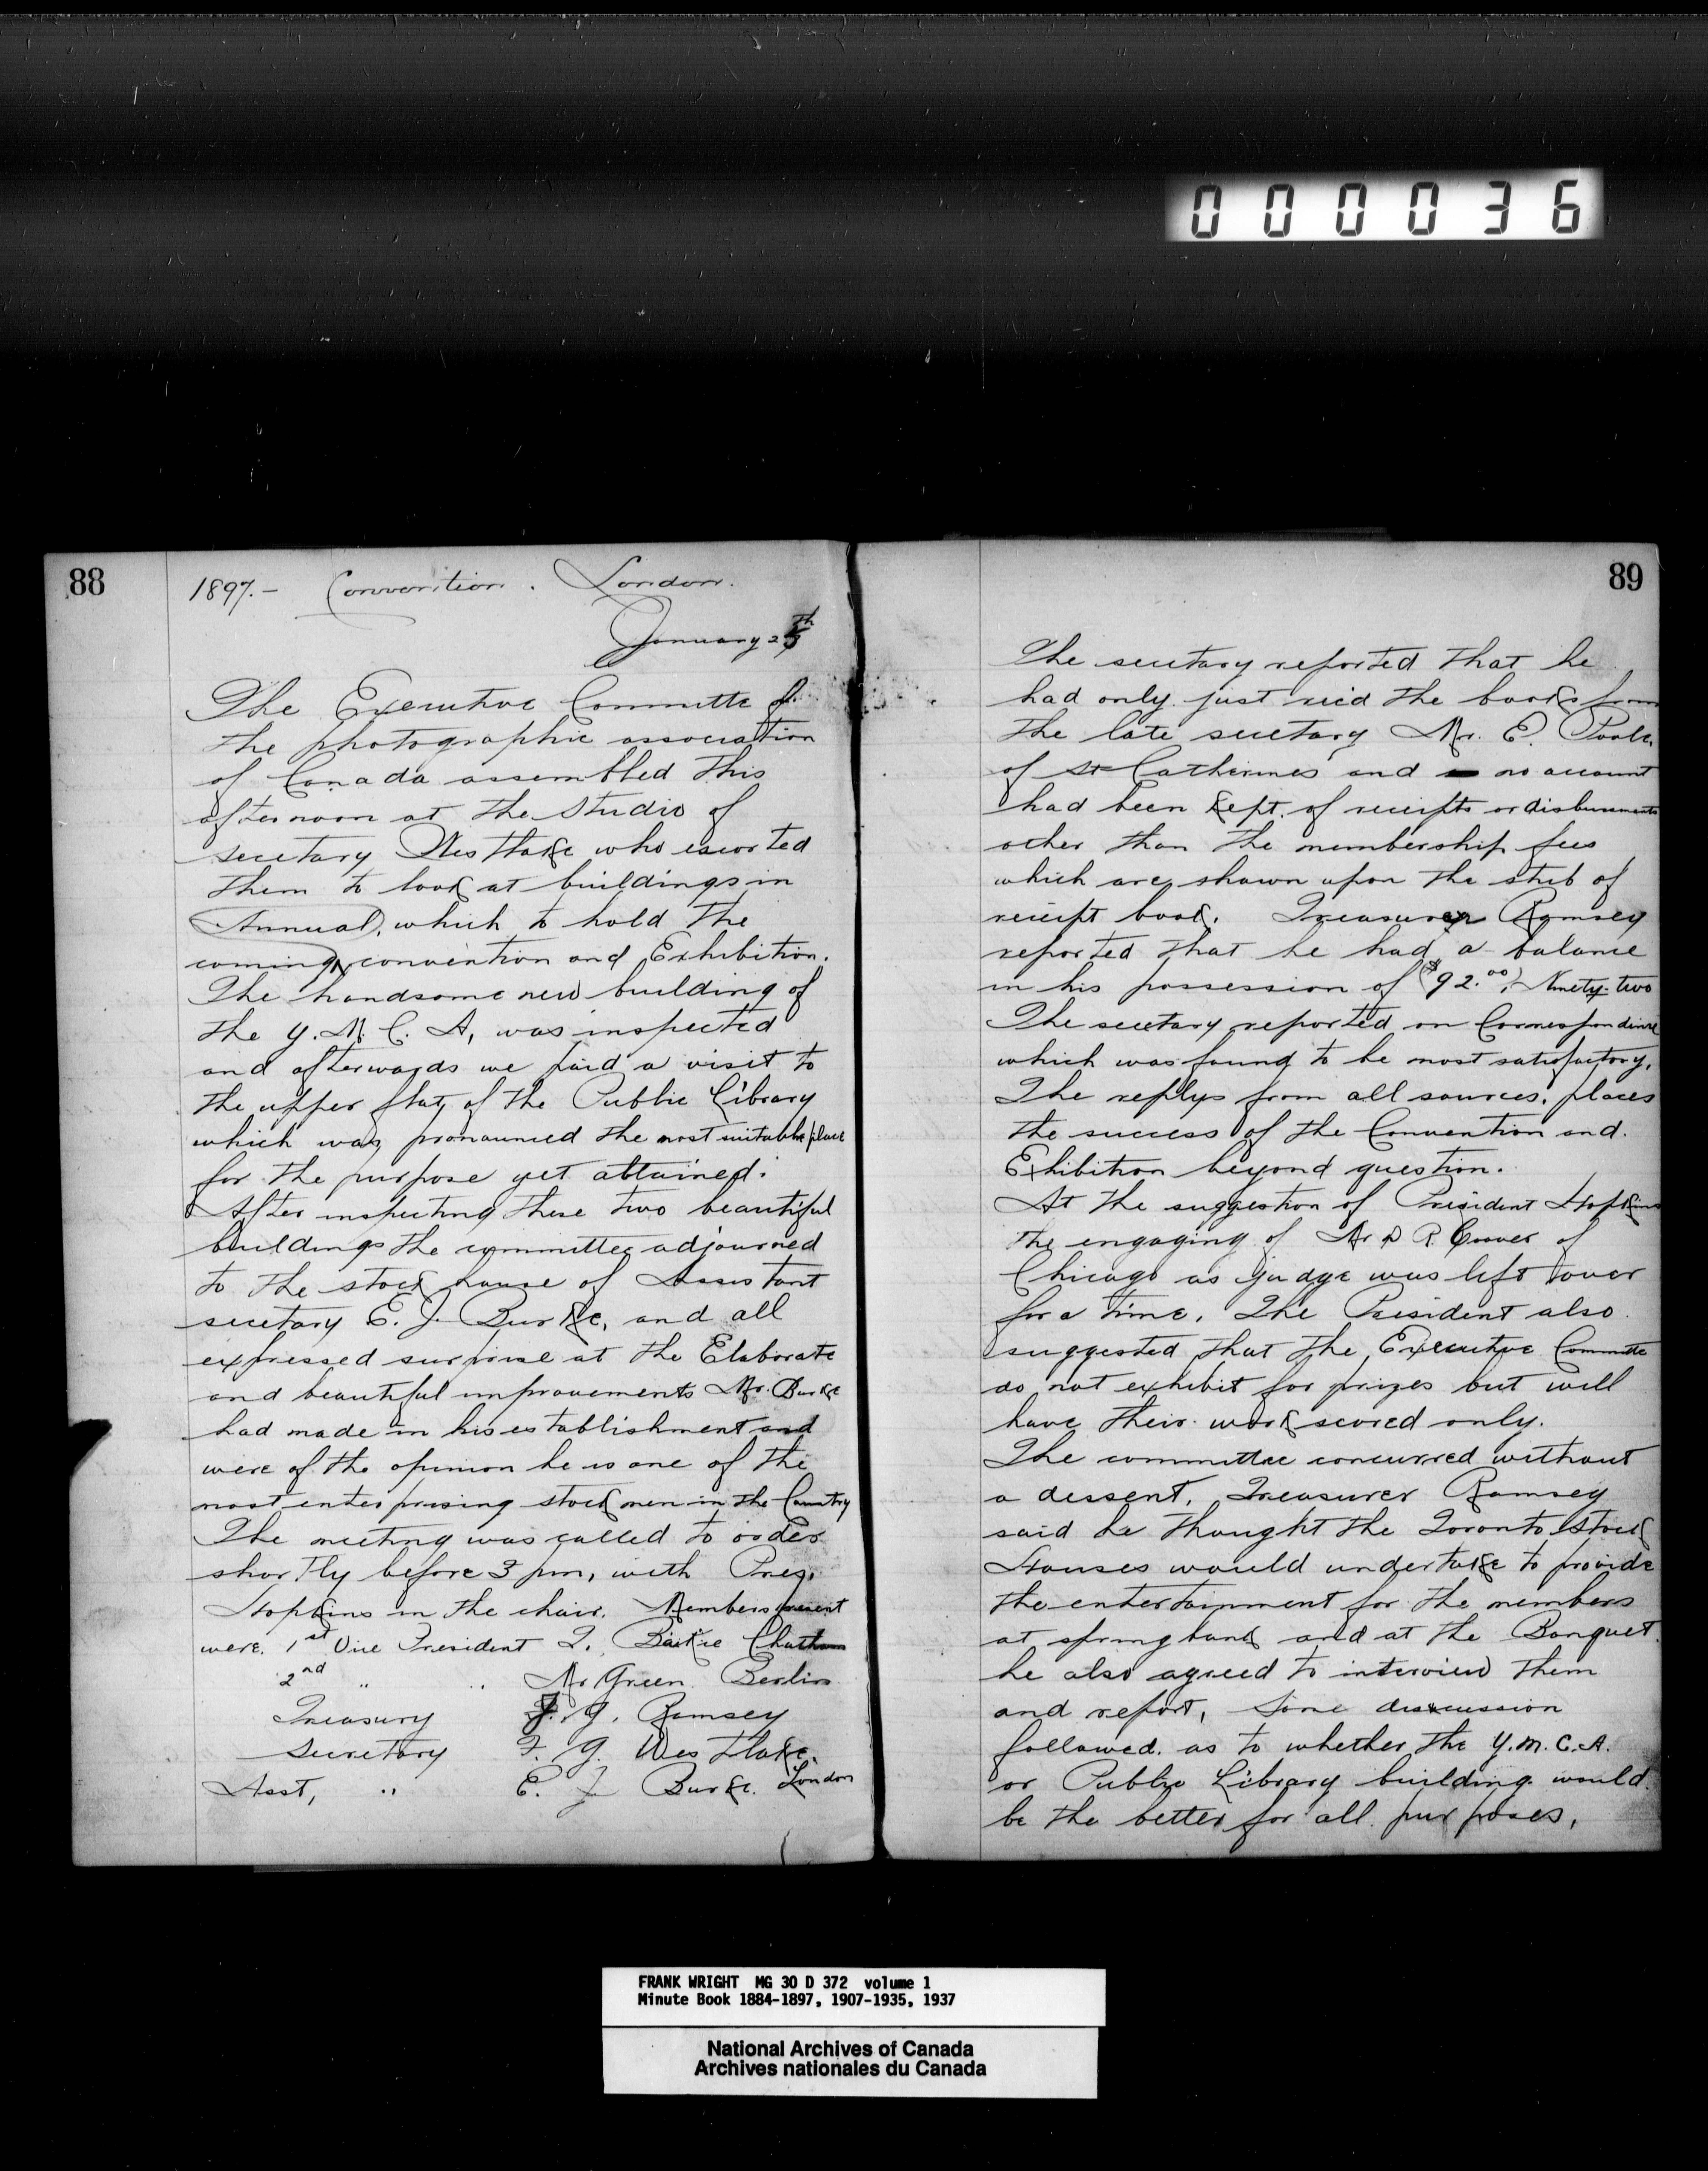 000036
88
1897.- Convention. London.
January 25th
The Executive Committe of
the photographic association
of Canada assembled this
afternoon at the studio of
secetary Westlake who escorted
them to look at buildings in
Annual, which to hold the
coming convention and Exhibition.
The handsome new building of
the Y. M. C. A, was inspected
and afterwards we paid a visit to
the upper flat, of the Public Library
which was, pronounced the most suitable place
for the purpose yet obtained.
After inspecting these two beautiful
buildings the committee adjourned
to the stock house of Assistant
secetary E. J. Burke, and all
expressed surprise at the Elaborate
and beautiful improvements Mr. Burke
had made in his establishment and
were of the opinion he is one of the
most enterprising stock men in the Country
The meeting was called to order
shortly before 3 pm, with Pres.
Hopkins in the chair. Members present
were. 1st Vice President T. Baikie Chatham
2nd " " Mr Green. Berlin
Treasury J. G. Ramsey
Secretary F. G. Westlake.
Asst, " E. J. Burke. London
89
The secetary reported that he
had only just rec'd the books from
the late secetary Mr. E. Poole.
of St Catherines and no account
had been kept. of receipts or disbursments
other than the membership fees
which are, shown upon the stub of
receipt book. Treasurer Ramsey
reported that he had a balance
in his possession of ($92.00,) Ninety-two
The secetary reported on Correspondence
which was found to be most satisfactory.
The replys from all sources, places
the success of the Convention and.
Exhibition beyond question.
At the suggestion of President Hopkins
the engaging of Mr D R. Coover of
Chicago as judge was left over
for a time. The President also
suggested that the Executive Committe
do not exhibit for prizes but will
have their work scored only.
The committee concurred without
a dessent. Treasurer Ramsey
said he thought the Toronto Stock
Houses would undertake to provide
the entertainment for the members
at springbank and at the Banquet.
he also agreed to interview them
and report, Some discussion
followed. as to whether the Y.M.C.A.
or Public Library building would
be the better for all purposes,
FRANK WRIGHT MG 30 D 372 volume 1
Minute Book 1884-1897, 1907-1935, 1937
National Archives of Canada
Archives nationales du Canada